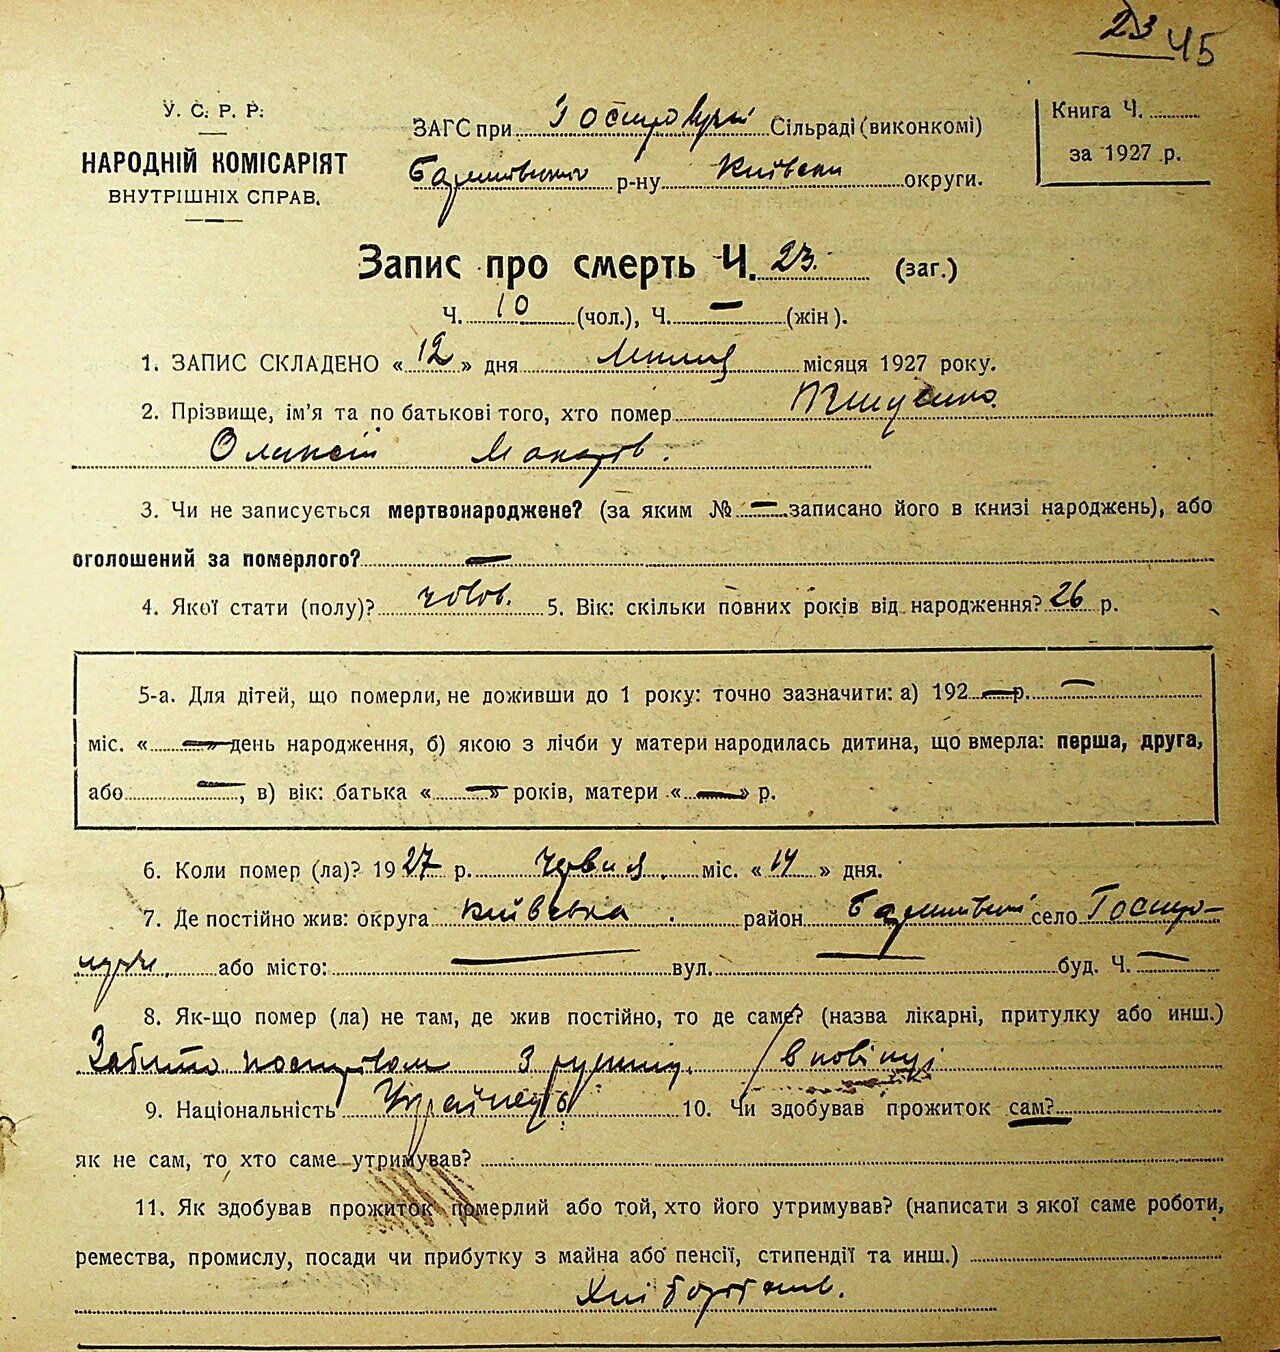 23 45
У. С. Р. Р.
НАРОДНІЙ КОМІСАРІЯТ
ВНУТРІШНІХ СПРАВ.
ЗАГС при Сільраді (виконкомі)
р-ну Київськ округи.
Книга Ч.
за 1927 р.
Запис про смерть Ч. 23. (заг.)
Ч. 10 (чол.), Ч. — (жін).
1. ЗАПИС СКЛАДЕНО «12» дня Липня місяця 1927 року.
2. Прізвище, ім'я та по батькові того, хто помер
Олексій Макаров.
3. Чи не записується мертвонароджене? (за яким № — записано його в книзі народжень), або
оголошений за померлого? —
4. Якої стати (полу)? чолов. 5. Вік: скільки повних років від народження? 26 р.
5-а. Для дітей, що померли, не доживши до 1 року: точно зазначити: а) 192 — р. —
міс. « — » день народження, б) якою з лічби у матери народилась дитина, що вмерла: перша, друга,
або — , в) вік: батька « — » років, матери « — » р.
6. Коли помер (ла)? 1927 р. червня міс. «14» дня.
7. Де постійно жив: округа Київська район село Гостро-
або місто: — вул. — буд. Ч. —
8. Як-що помер (ла) не там, де жив постійно, то де саме? (назва лікарні, притулку або инш.)
Забито пострілом з
9. Національність Українець 10. Чи здобував прожиток сам?
як не сам, то хто саме утримував?
11. Як здобував прожиток померлий або той, хто його утримував? (написати з якої саме роботи,
ремества, промислу, посади чи прибутку з майна або пенсії, стипендії та инш.)
Хліборобств.